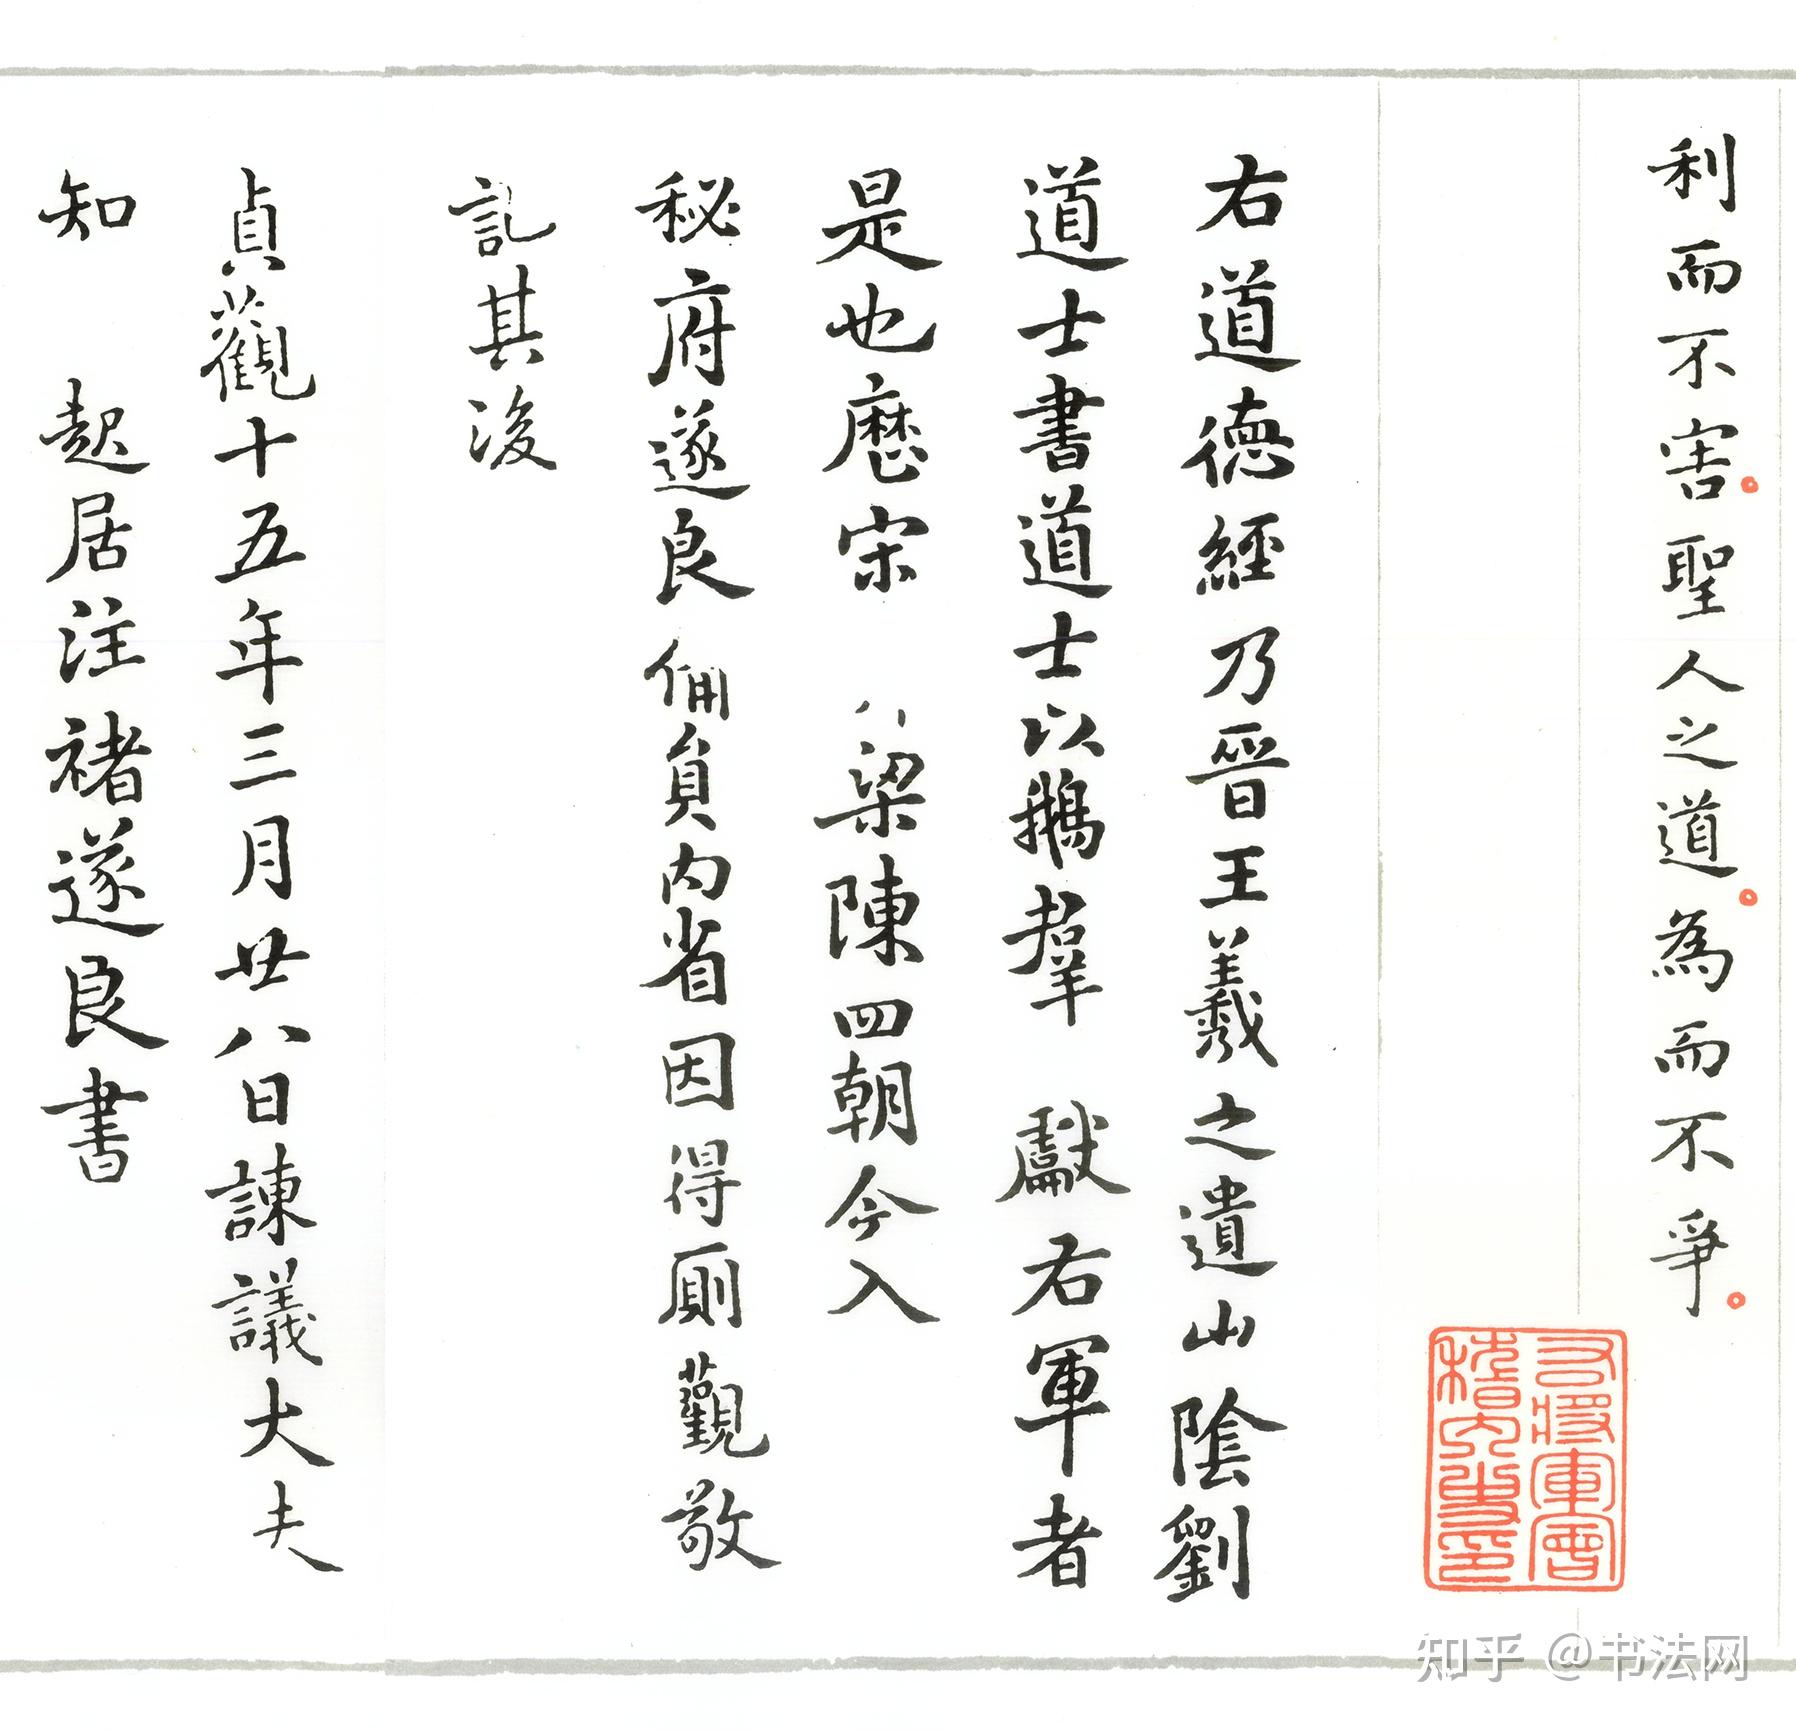 利而不害。聖人之道。為而不爭。
右將軍會
稽內史印
右道德經乃晉王羲之遺山陰劉
道士書道士以鵝羣 獻右軍者
是也歷宋 梁陳四朝今入
秘府遂良備員內省因得廁觀敬
記其後
貞觀十五年三月廿八日諫議大夫
知 起居注褚遂良書
知乎 @书法网